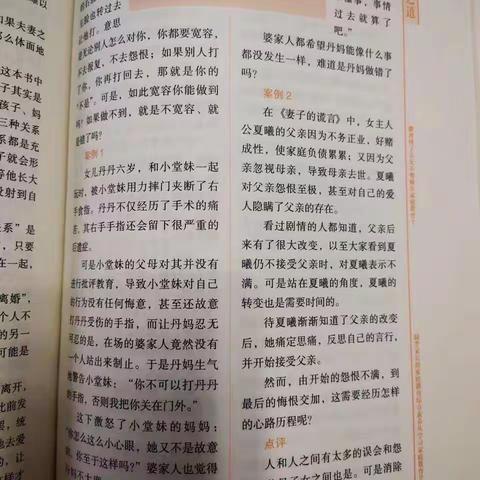 果夫妻之
么体面地
这本书中
子其实是
孩子、妈
三种关系
都是充
子就会形
等他长大
投射到自
系”是
，只要
在一起，
离婚”，
个人不
的另一
可能是
离开，
此前发
罢，统
地去爱
的，让
脸也转过去
让他打。意思
无论别人怎么对你，你都要宽容，
不报复、不去怨恨；如果别人打
了你，你再打回去，那就是你的
“不是”。可是，如此宽容你能做到
吗？如果做不到，就是不宽容、就
是错了吗？
案例1
女儿丹丹六岁，和小堂妹一起
玩时，被小堂妹用力摔门夹断了右
手食指。丹丹不仅经历了手术的痛
苦，其右手手指还会留下很严重的
后遗症。
可是小堂妹的父母对其并没有
进行批评教育，导致小堂妹对自己
的行为没有任何悔意，甚至还故意
打丹丹受伤的手指，而让丹妈忍无
可忍的是，在场的婆家人竟然没有
一个人站出来制止。于是丹妈生气
地警告小堂妹：“你不可以打丹丹
的手指，否则我把你关在门外。”
这下激怒了小堂妹的妈妈：
“你怎么这么小心眼，她又不是故意
的，你至于这样吗？”婆家人也觉得
事情
过去就算了
吧。”
婆家人都希望丹妈能像什么事
都没发生一样，难道是丹妈做错了
吗？
案例2
在《妻子的谎言》中，女主人
公夏曦的父亲因为不务正业，好赌
成性，使家庭负债累累；又因为父
亲忽视母亲，导致母亲去世。夏曦
对父亲怨恨至极，甚至对自己的爱
人隐瞒了父亲的存在。
看过剧情的人都知道，父亲后
来有了很大改变，以至大家看到夏
曦仍不接受父亲时，对夏曦表示不
满。可是站在夏曦的角度，夏曦的
转变也是需要时间的。
待夏曦渐渐知道了父亲的改变
后，她痛定思痛，反思自己的言行，
并开始接受父亲。
然而，由开始的怨恨不满，到
最后的悔恨交加，这需要经历怎样
的心路历程呢？
点评
人和人之间有太多的误会和怨
之道